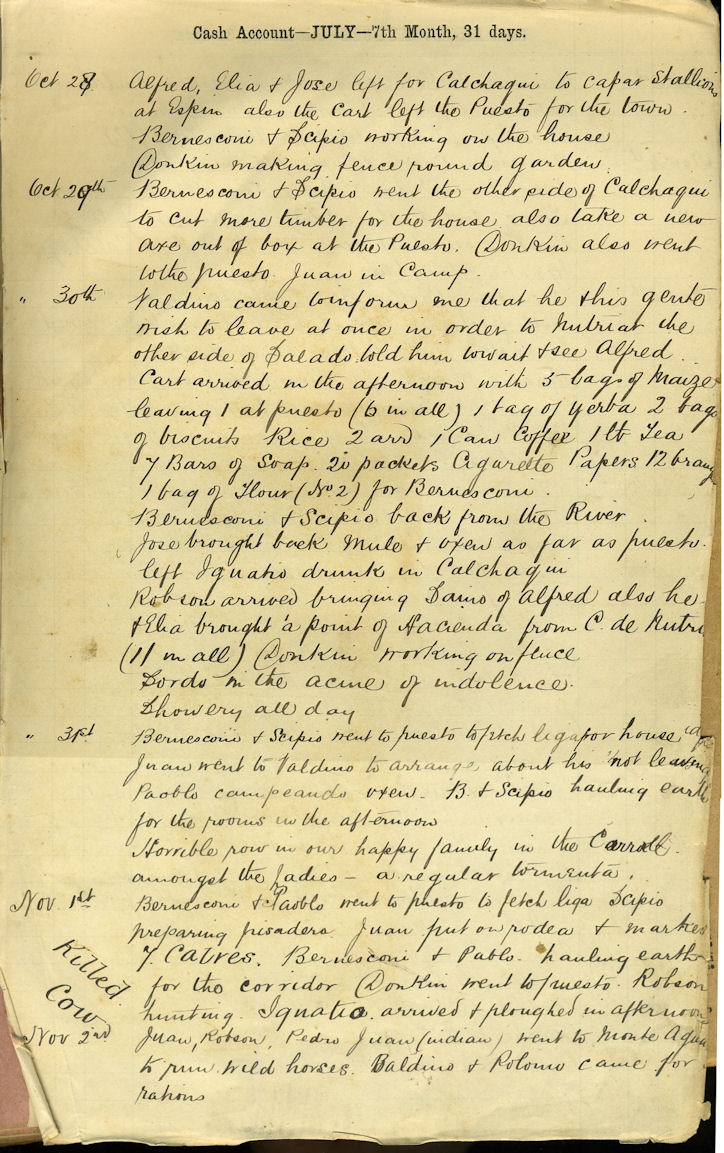 Cash Account—JULY—7th Month, 31 days.
Oct 28 Alfred, Elia & Jose left for Calchaqui to capar Stallions
at Espin also the Cart left the Puesto for the town.
Bernesconi & Scipio working on the house
Donkin making fence round garden
Oct 29th Bernesconi & Scipio went the other side of Calchaqui
to cut more timber for the house, also take a new
axe out of box at the Puesto. Donkin also went
to the puesto. Juan in Camp.
" 30th Valdino came to inform me that he & his gente
wish to leave at once in order to Nutriar the
other side of Salado told him to wait & see Alfred.
Cart arrived in the afternoon with 5 bags of Maize
leaving 1 at puesto (6 in all) 1 bag of yerba 2 bags
of biscuits Rice 2 arr 1 Can Coffee 1 lb Tea
7 Bars of Soap. 20 packets Cigarette Papers 12
1 bag of Flour (No 2) for Bernesconi.
Bernesconi & Scipio back from the River.
Jose brought back Mule & oxen as far as puesto.
left Ignatio drunk in Calchaqui
Robson arrived bringing Damo of Alfred also he
& Elia brought a point of Hacienda from C. de Nutri
(11 in all) Donkin working on fence
Sordo in the acme of indolence.
Showery all day
" 31st Bernesconi & Scipio went to puesto to fetch liga for house
Juan went to Valdino to arrange about his not leaving
Paoblo campeando oxen. B. & Scipio hauling earth
for the rooms in the afternoon
Horrible row in our happy family in the Corral.
amongst the Ladies – a regular tormenta.
Nov. 1st Bernesconi & Paoblo went to puesto to fetch liga Scipio
preparing pisadero. Juan put on rodea & marked
7. Calves. Bernesconi & Pablo hauling earth
for the corridor Donkin went to puesto. Robson
hunting. Ignatio arrived & ploughed in afternoon
Killed
Cow
Nov 2nd Juan, Robson, Pedro Juan (indian) went to Monte Agua
to run wild horses. Baldino & Polomo came for
rations